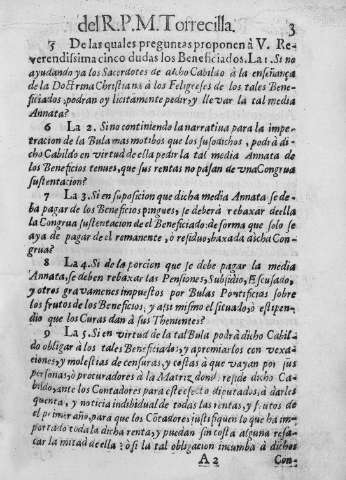 del R. P. M. Torrecilla. 3
5 De las quales preguntas proponen à V. Re-
verendissima cinco dudas los Beneficiados. La 1. Si no
ayudando ya los Sacerdotes de dicho Cabildo à la enseñança
de la Doctrina Christiana à los Feligreses de los tales Bene-
ficiados, podran oy licitamente pedir, y llevar la tal media
Annata?
6 La 2. Si no continiendo la narrativa para la impe-
tracion de la Bula mas motibos que los susodichos, podrà di-
cho Cabildo en virtud de ella pedir la tal media Annata de
los Beneficios tenues, que sus rentas no pasan de vna Congrua
sustentacion?
7 La 3. Si en suposicion que dicha media Annata se de-
ba pagar de los Beneficios pingues, se deberà rebaxar de ella
la Congrua sustentacion de el Beneficiado: de forma que solo se
aya de pagar de el romanente, ò residuo, baxada dicha Con-
grua?
8 La 4. Si de la porcion que se debe pagar la media
Annata, se deben rebaxar las Pensiones, Subsidio, Escusado,
y otros gravamenes impuestos por Bulas Pontificias sobre
los frutos de los Beneficios, y assi mismo el situado, ò estipen-
dio que los Curas dan à sus Thenientes?
9 La 5. Si en virtud de la tal Bula podrà dicho Cabil-
do obligar à los tales Beneficiados, y apremiarlos con vexa-
ciones, y molestias de censuras, y costas à que vayan por sus
personas, ò procuradores à la Matriz donde reside dicho Ca-
bildo, ante los Contadores para este efecto diputados, à darles
quenta, y noticia indibidual de todas las rentas, y frutos de
el primer año, para que los Cõtadores justifiquen lo que ha im-
portado toda la dicha renta, y puedan sin costa alguna resa-
car la mitad de ella? ò si la tal obligacion incumba à dichos
A 2 Con-